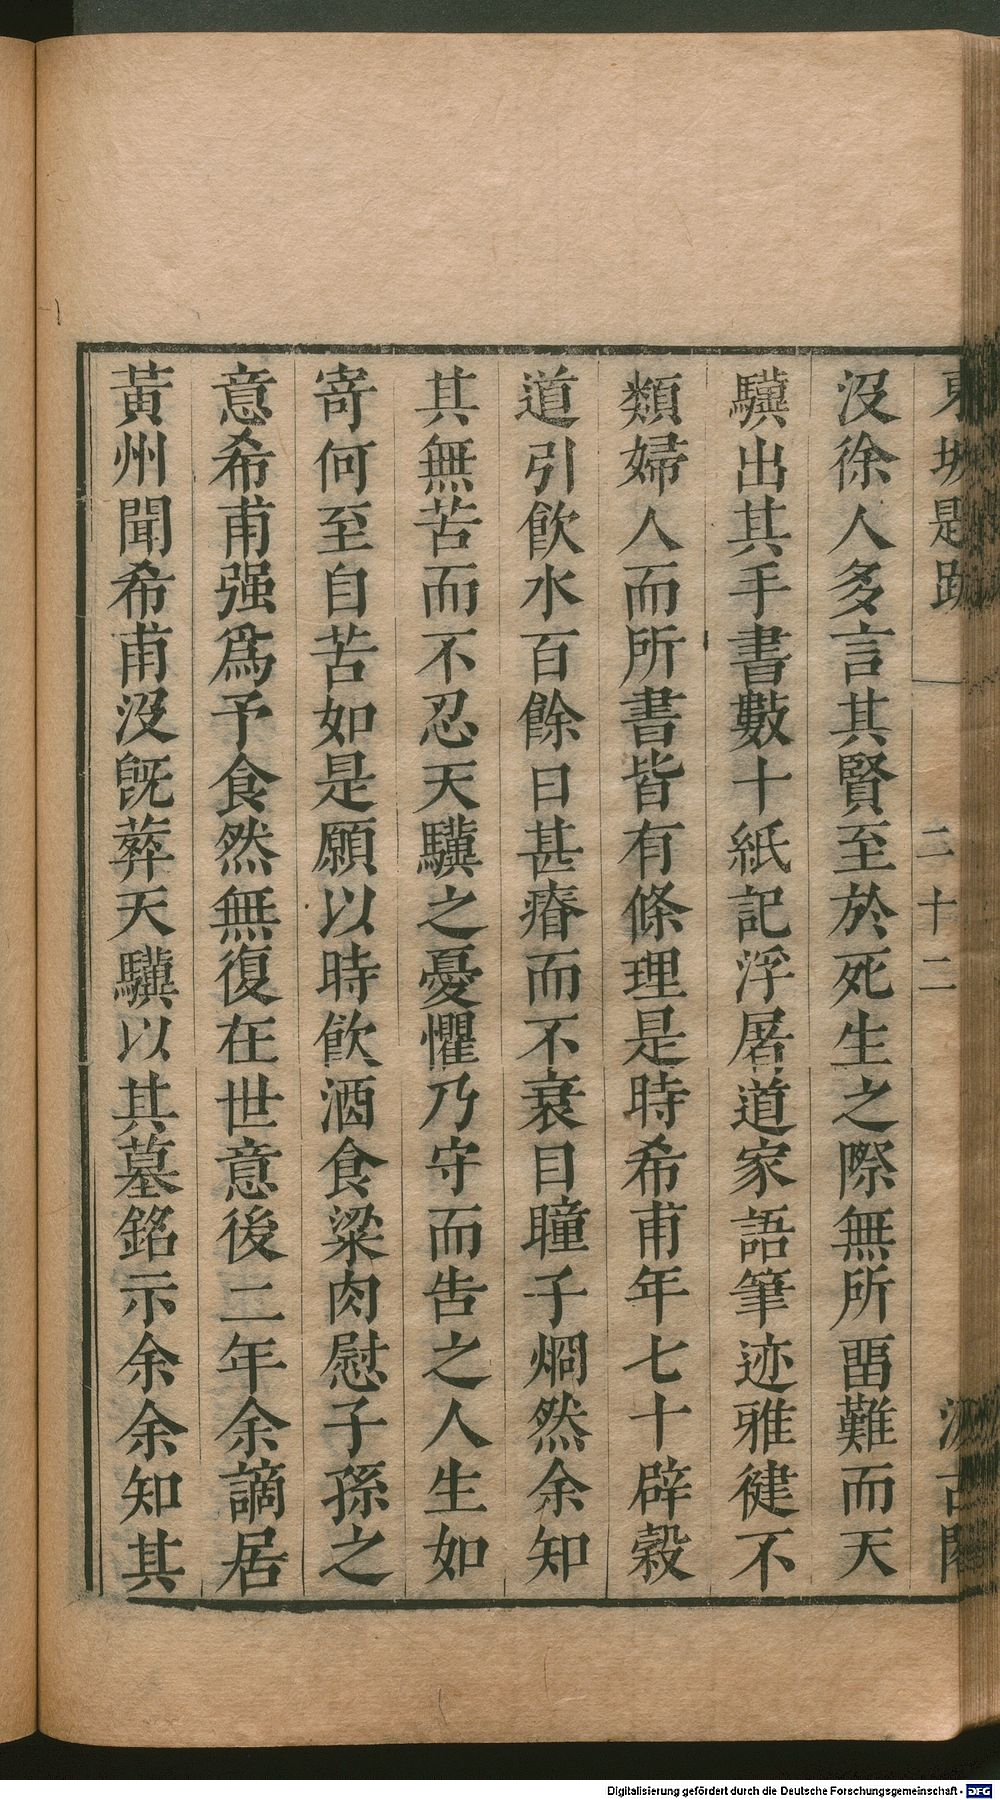 東坡題跋 二十二 汲古閣
沒徐人多言其賢至於死生之際無所畱難而天
驥出其手書數十紙記浮屠道家語筆迹雅健不
類婦人而所書皆有條理是時希甫年七十辟穀
道引飲水百餘日甚瘠而不衰目瞳子烱然余知
其無苦而不忍天驥之憂懼乃守而告之人生如
寄何至自苦如是願以時飲酒食粱肉慰子孫之
意希甫强爲予食然無復在世意後二年余謫居
黃州聞希甫沒旣葬天驥以其墓銘示余余知其
Digitalisierung gefördert durch die Deutsche Forschungsgemeinschaft - DFG